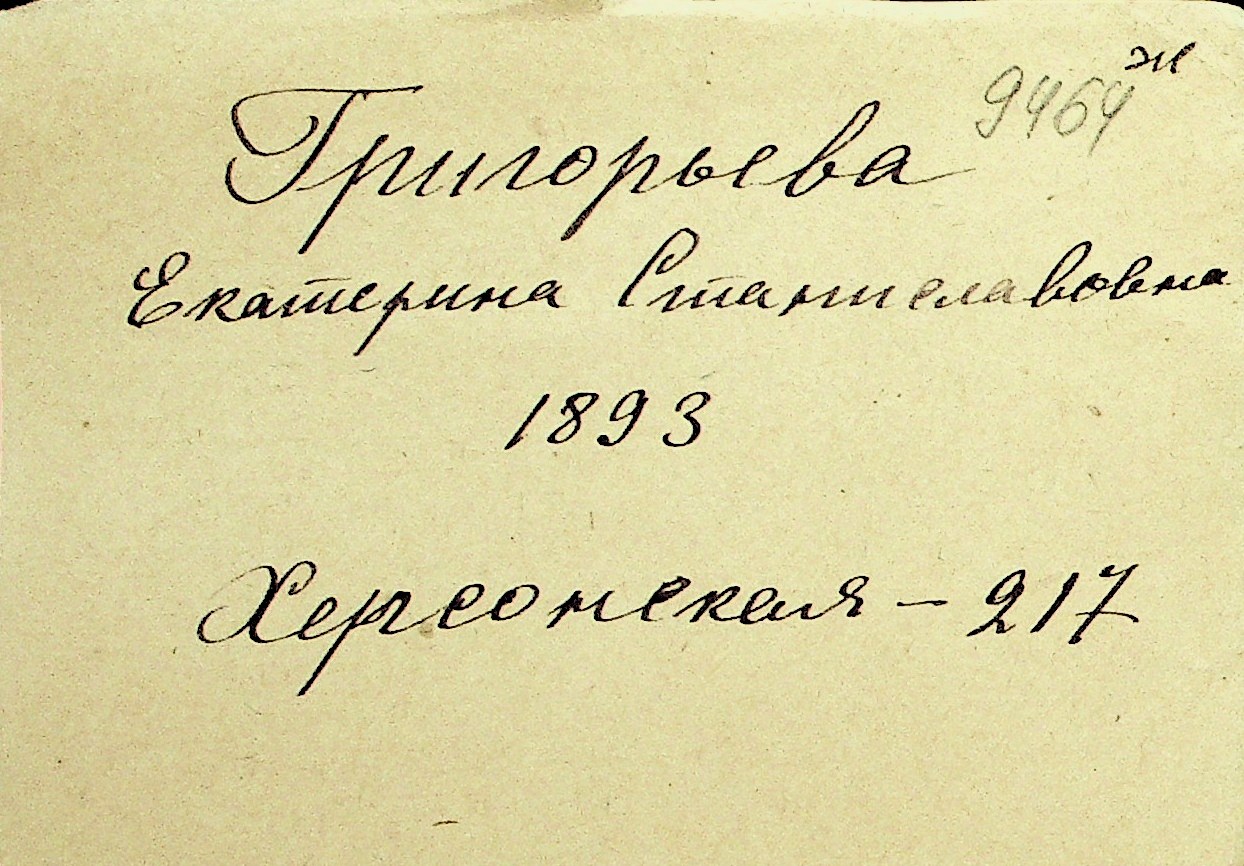 9464 ж
Григорьева
Екатерина Станиславовна
1893
Херсонская – 217